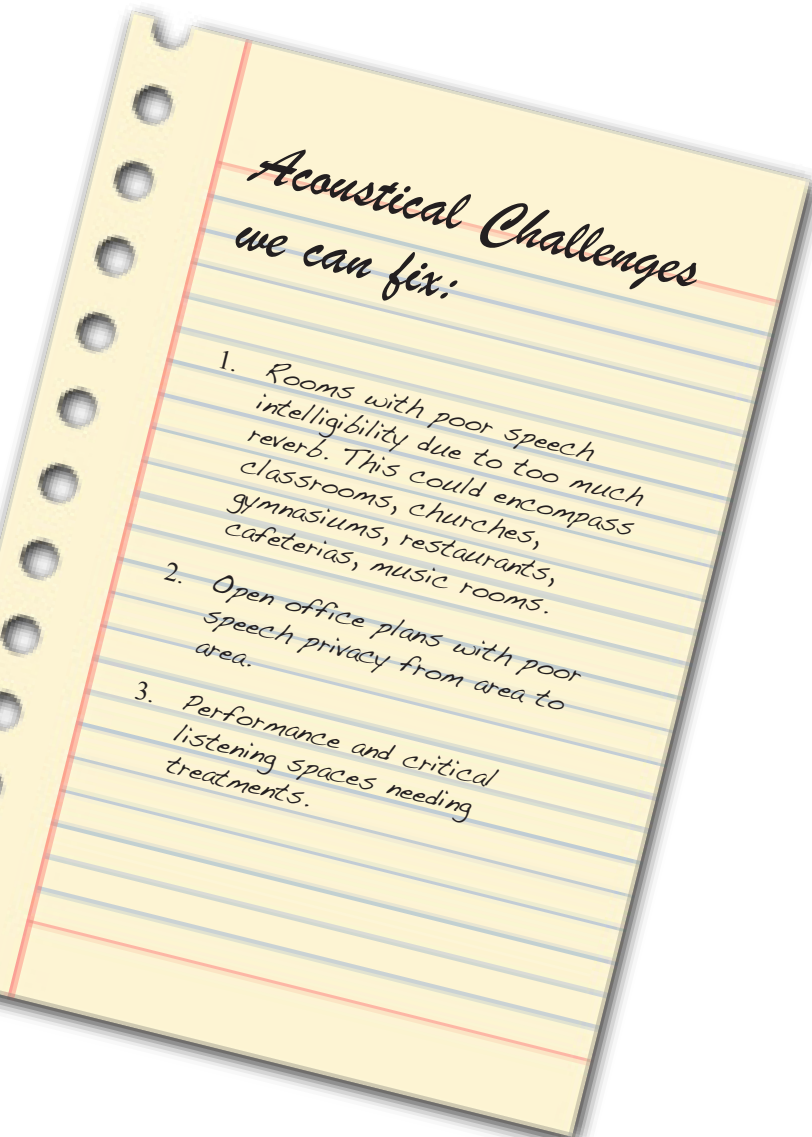 Acoustical Challenges
we can fix:
1. Rooms with poor speech
intelligibility due to too much
reverb. This could encompass
classrooms, churches,
gymnasiums, restaurants,
cafeterias, music rooms.
2. Open office plans with poor
speech privacy from area to
area.
3. Performance and critical
listening spaces needing
treatments.